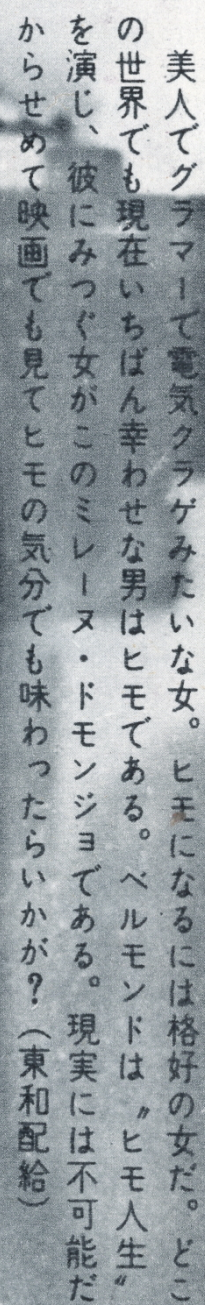 美人でグラマーで電気クラゲみたいな女。ヒモになるには格好の女だ。どこ
の世界でも現在いちばん幸わせな男はヒモである。ベルモンドは〝ヒモ人生〟
を演じ、彼にみつぐ女がこのミレーヌ・ドモンジョである。現実には不可能だ
からせめて映画でも見てヒモの気分でも味わったらいかが?(東和配給)